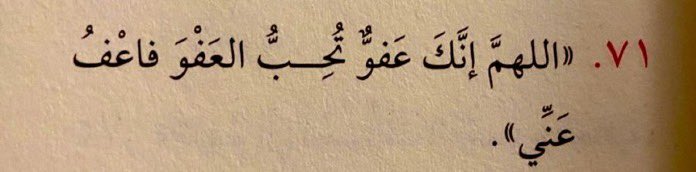 ٧١. «اللهمَّ إِنَّكَ عَفوٌّ تُحِـبُّ العَفْوَ فاعْفُ
عَنِّي».